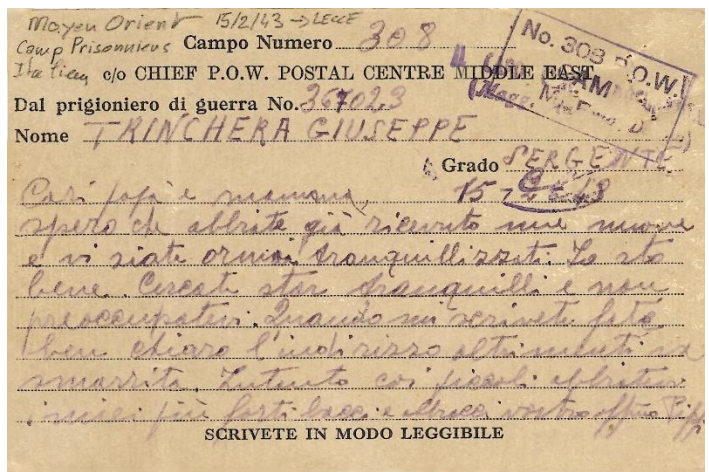 Moyen Orient 15/2/43 → LECCE
Camp Prisonniers
Italien
Campo Numero 308
c/o CHIEF P.O.W. POSTAL CENTRE MIDDLE EAST
No. 308 P.O.W.
Dal prigioniero di guerra No. 367023
Nome TRINCHERA GIUSEPPE
Grado SERGENTE
Cari papà e mamma, 15
spero che abbiate già ricevuto mie nuove
e vi siate ormai tranquillizzati. Io sto
bene. Cercate star tranquilli e non
preoccupatevi. Quando mi scrivete fate
ben chiaro l'indirizzo altrimenti va
smarrita. Intanto coi piccoli abbiatevi
i miei più forti baci e
SCRIVETE IN MODO LEGGIBILE